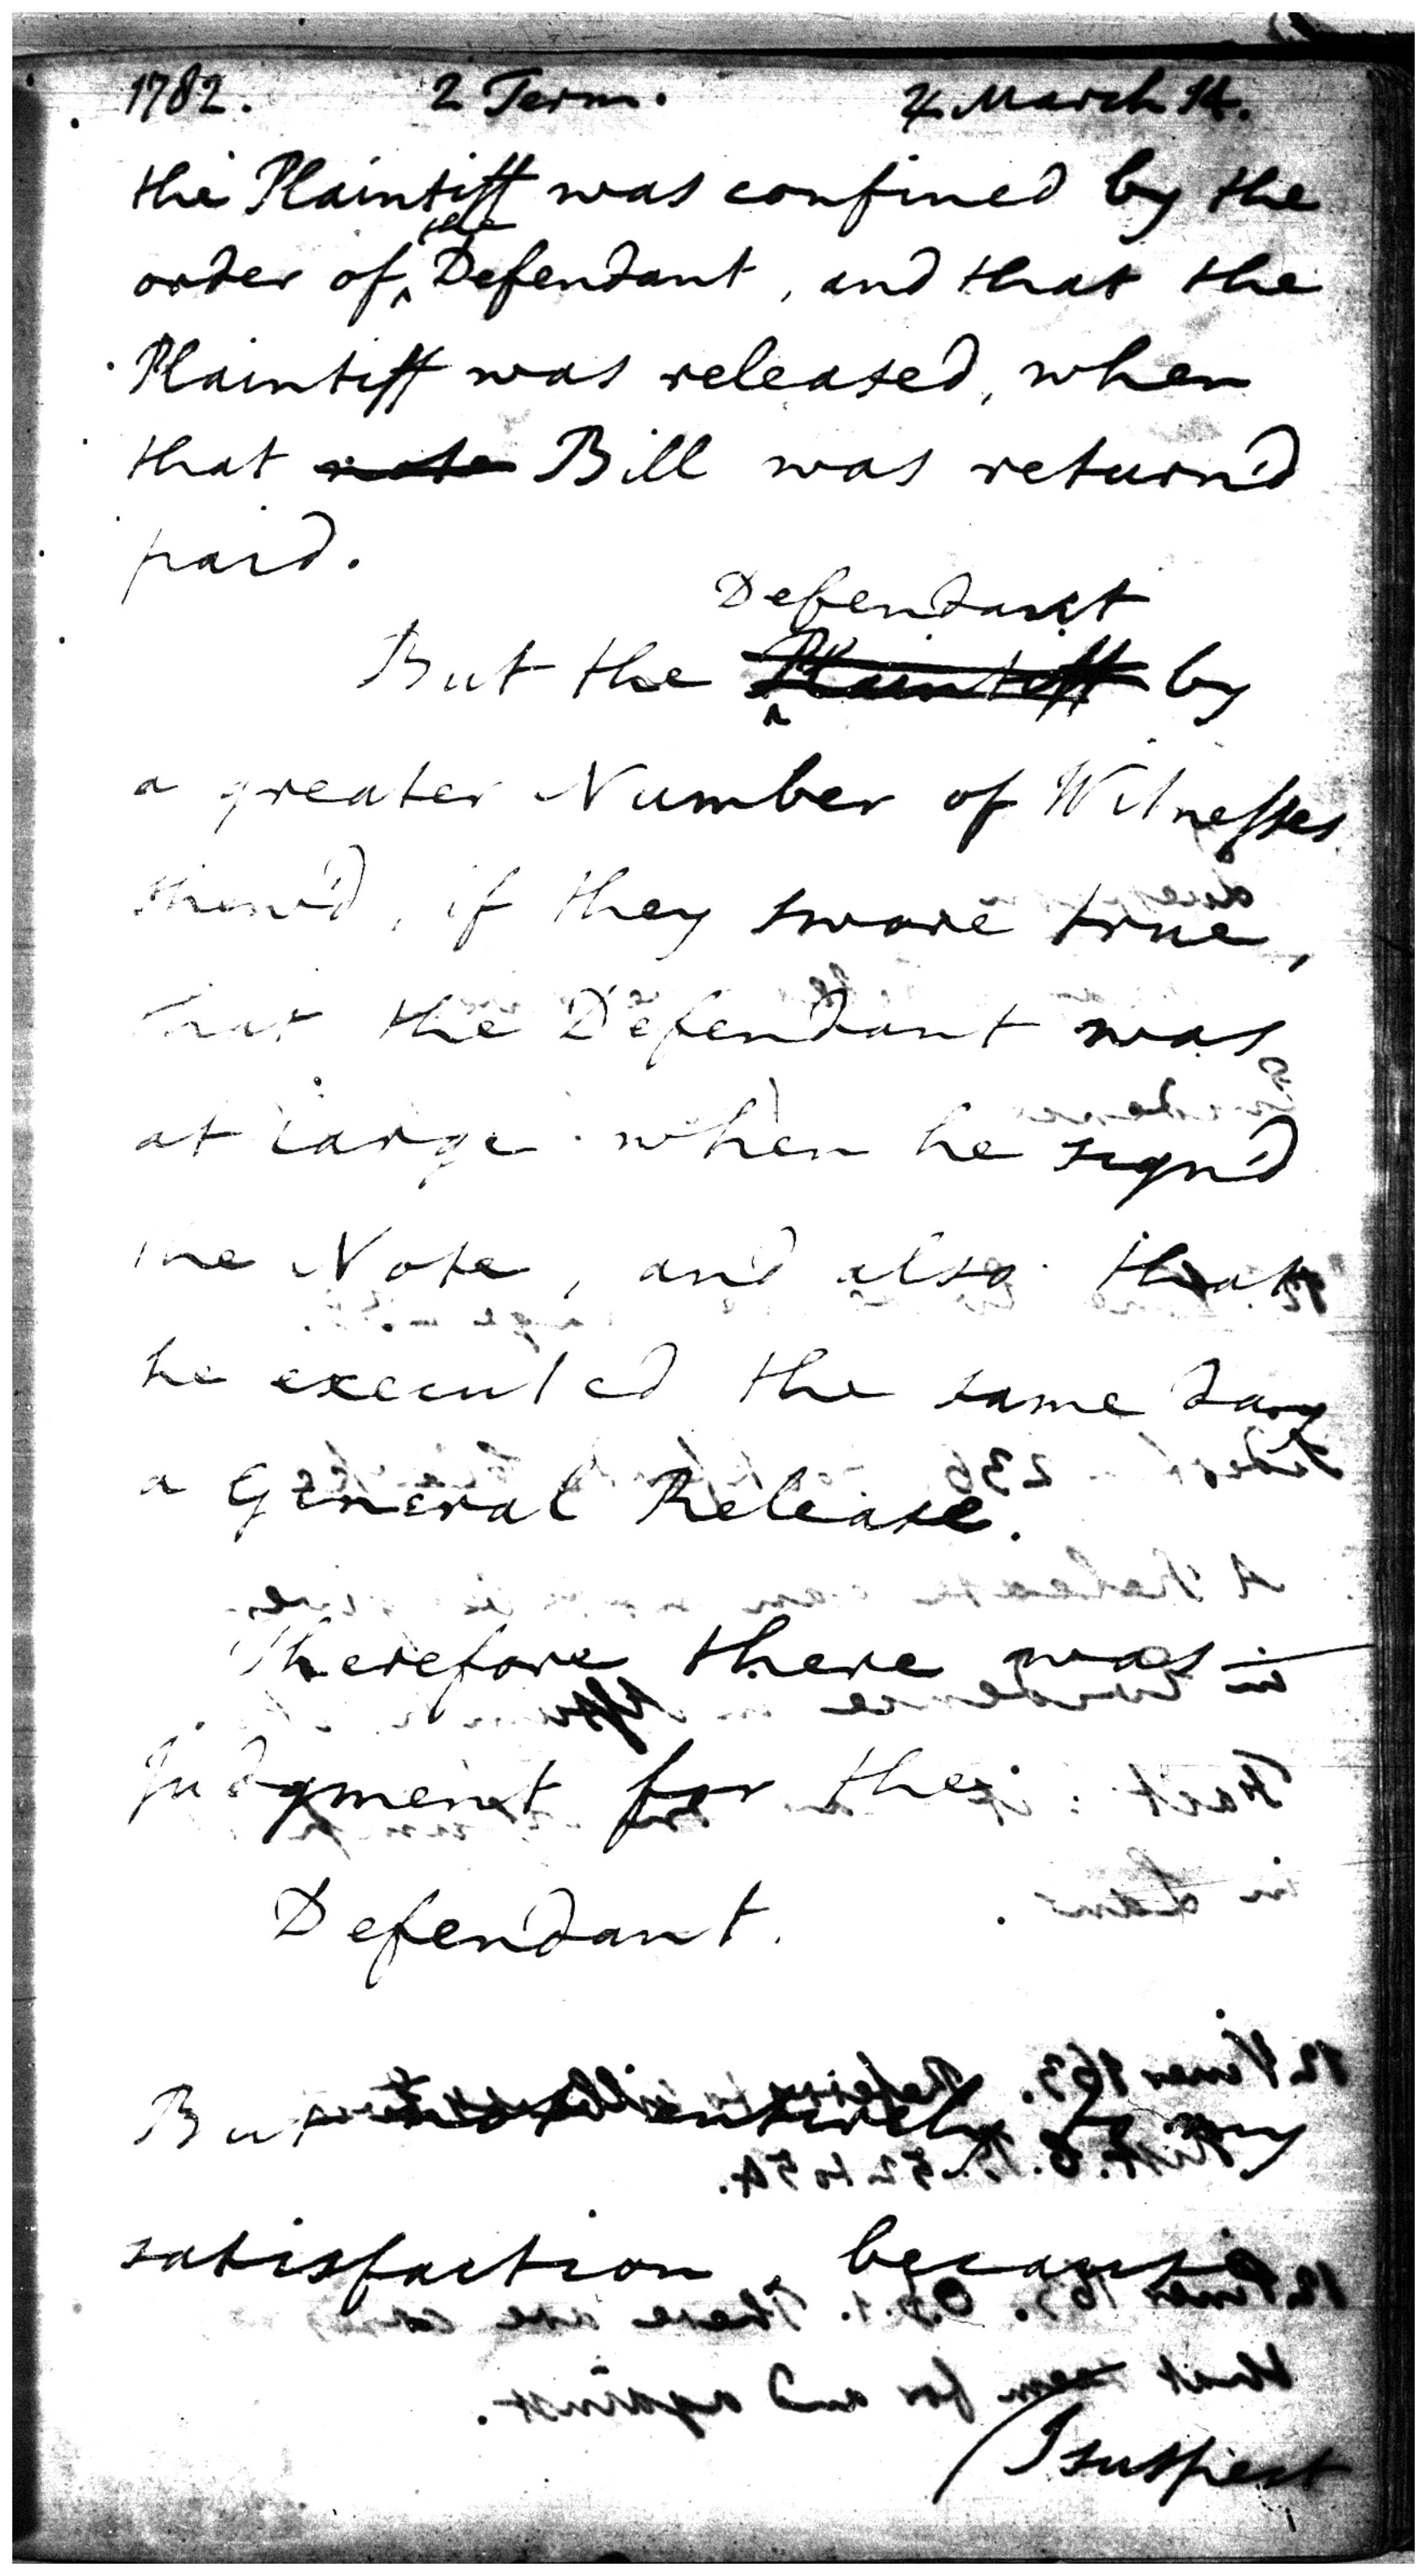 1782. 2 Term. 4 March 14.
the Plaintiff was confined by the
the
order of Defendant, and that the
Plaintiff was released, when
that note Bill was return'd
paid.
Defendant
But the Plaintiff by
a greater Number of Witnesses
shew'd, if they swore true,
that the Defendant was
at large when he sign'd
the Note, and also that
he executed the same day
a General Release.
Therefore there was
Judgment for the
Defendant.
But not entirely to my
satisfaction, because
I suspect